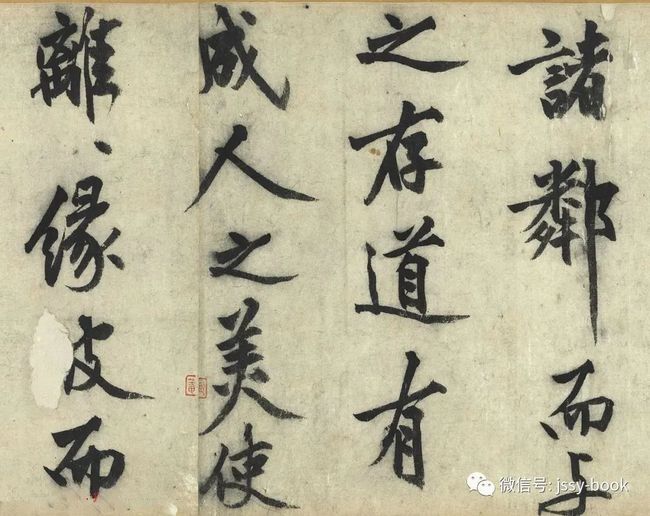 諸鄰而与
之存道有
成人之美使
離、緣皮而
微信号: jssy-book